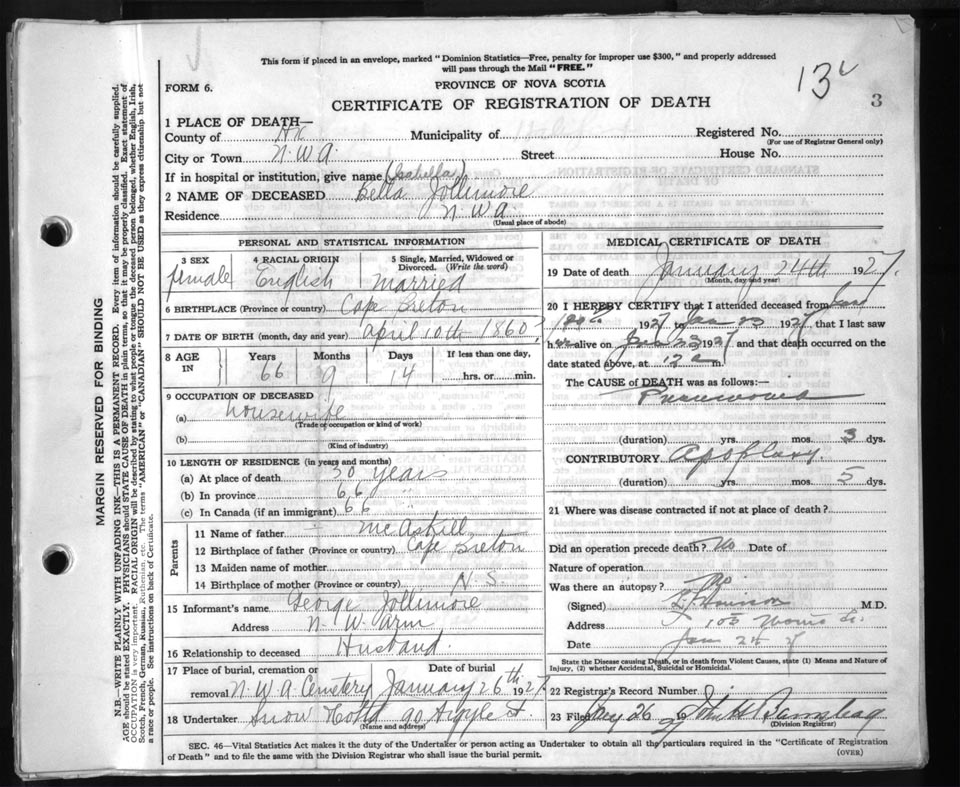 This form if placed in an envelope, marked "Dominion Statistics—Free, penalty for improper use $300," and properly addressed
will pass through the Mail "FREE."
13
3
FORM 6.
PROVINCE OF NOVA SCOTIA
CERTIFICATE OF REGISTRATION OF DEATH
1 PLACE OF DEATH—
County of Hx Municipality of Registered No.
(For use of Registrar General only)
City or Town N.W.A. Street House No.
If in hospital or institution, give name
(Isabella)
2 NAME OF DECEASED Bella Jollimore
Residence N.W.A.
(Usual place of abode)
PERSONAL AND STATISTICAL INFORMATION
3 SEX 4 RACIAL ORIGIN 5 Single, Married, Widowed or Divorced. (Write the word)
female English married
6 BIRTHPLACE (Province or country) Cape Breton
7 DATE OF BIRTH (month, day and year) april 10th 1860?
8 AGE IN Years Months Days If less than one day,
66 9 14 hrs. or min.
9 OCCUPATION OF DECEASED
(a) housewife
(Trade or occupation or kind of work)
(b)
(Kind of industry)
10 LENGTH OF RESIDENCE (in years and months)
(a) At place of death 30 years
(b) In province 66 "
(c) In Canada (if an immigrant) 66 "
Parents
11 Name of father McAskill
12 Birthplace of father (Province or country) Cape Breton
13 Maiden name of mother
14 Birthplace of mother (Province or country) N.S
15 Informant's name George Jollimore
Address N. W. Arm
16 Relationship to deceased Husband.
17 Place of burial, cremation or removal N.W.A. Cemetery Date of burial January 26th 1927
18 Undertaker Snow 90 Argyle St.
(Name and address)
MEDICAL CERTIFICATE OF DEATH
19 Date of death January 24th 1927.
(Month, day and year)
20 I HEREBY CERTIFY that I attended deceased from Jan
1927 to Jan 23 1927, that I last saw
her alive on Jan 23 1927 and that death occurred on the
date stated above, at 12 a m.
The CAUSE of DEATH was as follows:—
Pneumonia
(duration) yrs. mos. 3 dys.
CONTRIBUTORY apoplexy
(duration) yrs. mos. 5 dys.
21 Where was disease contracted if not at place of death?
Did an operation precede death? No Date of
Nature of operation
Was there an autopsy? No
(Signed) M.D.
Address 103 Morris St.
Date Jan 24 27
State the Disease causing Death, or in Death from Violent Causes, state (1) Means and Nature of
Injury, (2) whether Accidental, Suicidal or Homicidal.
22 Registrar's Record Number
23 Filed Jany 26 1927
(Division Registrar)
SEC. 46—Vital Statistics Act makes it the duty of the Undertaker or person acting as Undertaker to obtain all the particulars required in the "Certificate of Registration
of Death" and to file the same with the Division Registrar who shall issue the burial permit.
(OVER)
MARGIN RESERVED FOR BINDING
N.B.—WRITE PLAINLY WITH UNFADING INK—THIS IS A PERMANENT RECORD. Every item of information should be carefully supplied.
AGE should be stated EXACTLY. PHYSICIANS should STATE CAUSE OF DEATH in plain terms, so that it may be properly classified. Exact statement of
OCCUPATION is very important. RACIAL ORIGIN will be described by stating to what people or tongue the deceased person belonged, whether English, Irish,
Scotch, French, German, Russian, Ruthenian, etc. The terms "AMERICAN" or "CANADIAN" SHOULD NOT BE USED as they express citizenship but not
a race or people. See instructions on back of Certificate.